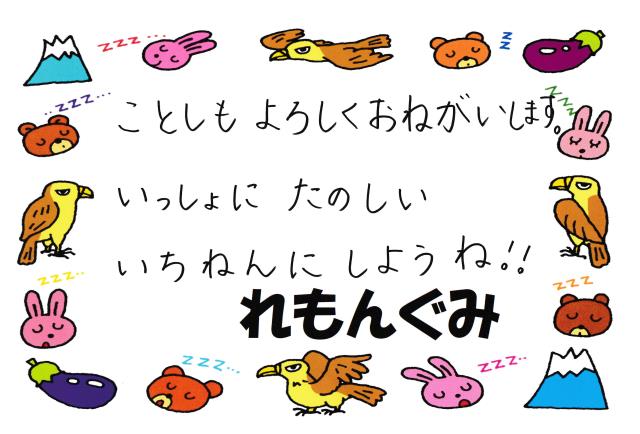 zzz...
zzz
..zzz...
zzz
ことしも よろしくおねがいします。
いっしょに たのしい
いちねんに しよう ね!!
zzz..
zzz
れもんぐみ
zzz...
zzz..